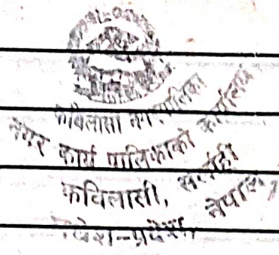 कविलासी नगरपालिका
नगर कार्य पालिकाको कार्यालय
कविलासी, सर्लाही
प्रदेश, नेपाल